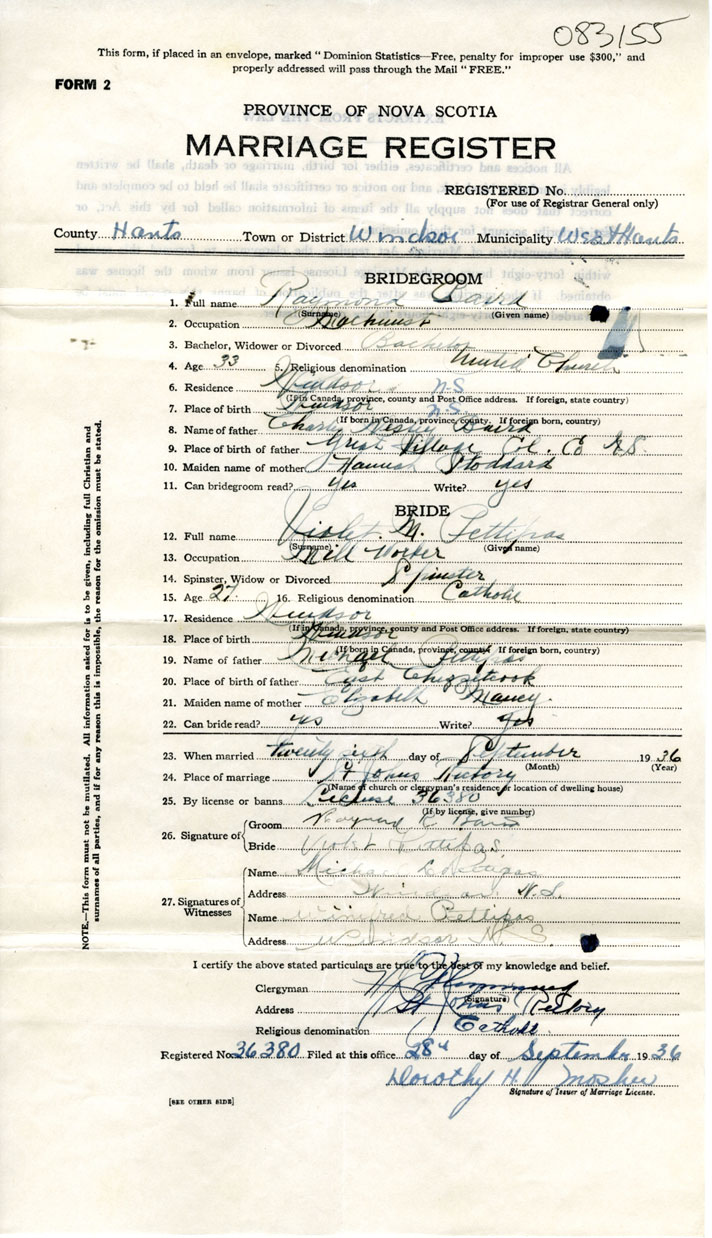 083155
This form, if placed in an envelope, marked “ Dominion Statistics—Free, penalty for improper use $300,” and
properly addressed will pass through the Mail “ FREE.”
FORM 2
PROVINCE OF NOVA SCOTIA
MARRIAGE REGISTER
REGISTERED No.
(For use of Registrar General only)
County Hants Town or District Windsor Municipality West Hants
BRIDEGROOM
1. Full name Raymond Baird
(Surname) (Given name)
2. Occupation Machinist
3. Bachelor, Widower or Divorced Bachelor
4. Age 33 5. Religious denomination United Church
6. Residence Windsor N S
(If in Canada, province, county and Post Office address. If foreign, state country)
7. Place of birth Windsor N S
(If born in Canada, province, county. If foreign born, country)
8. Name of father Charles Wesley Baird
9. Place of birth of father Great Village Col. Co N.S.
10. Maiden name of mother Hannah Stoddard
11. Can bridegroom read? yes Write? yes
BRIDE
12. Full name Violet M. Pettipas
(Surname) (Given name)
13. Occupation Mill Worker
14. Spinster, Widow or Divorced Spinster
15. Age 27 16. Religious denomination Catholic
17. Residence Windsor
(If in Canada, province, county and Post Office address. If foreign, state country)
18. Place of birth Windsor
(If born in Canada, province, county If foreign born, country)
19. Name of father Michael Pettipas
20. Place of birth of father East Chezzetcook
21. Maiden name of mother Elizabeth
22. Can bride read? yes Write? yes
23. When married twenty sixth day of September 1936
(Month) (Year)
24. Place of marriage St Johns Rectory
(Name of church or clergyman's residence or location of dwelling house)
25. By license or banns License 36380
(If by license, give number)
26. Signature of
Groom Raymond Baird
Bride Violet Pettipas
27. Signatures of Witnesses
Name Michael Pettipas
Address Windsor N.S.
Name Winifred Pettipas
Address Windsor N S
I certify the above stated particulars are true to the best of my knowledge and belief.
Clergyman
(Signature)
Address St Johns Rectory
Religious denomination Catholic
Registered No. 36380 Filed at this office 28th day of September 1936
Dorothy H Mosher
Signature of Issuer of Marriage License.
[SEE OTHER SIDE]
NOTE.—This form must not be mutilated. All information asked for is to be given, including full Christian and
surnames of all parties, and if for any reason this is impossible, the reason for the omission must be stated.